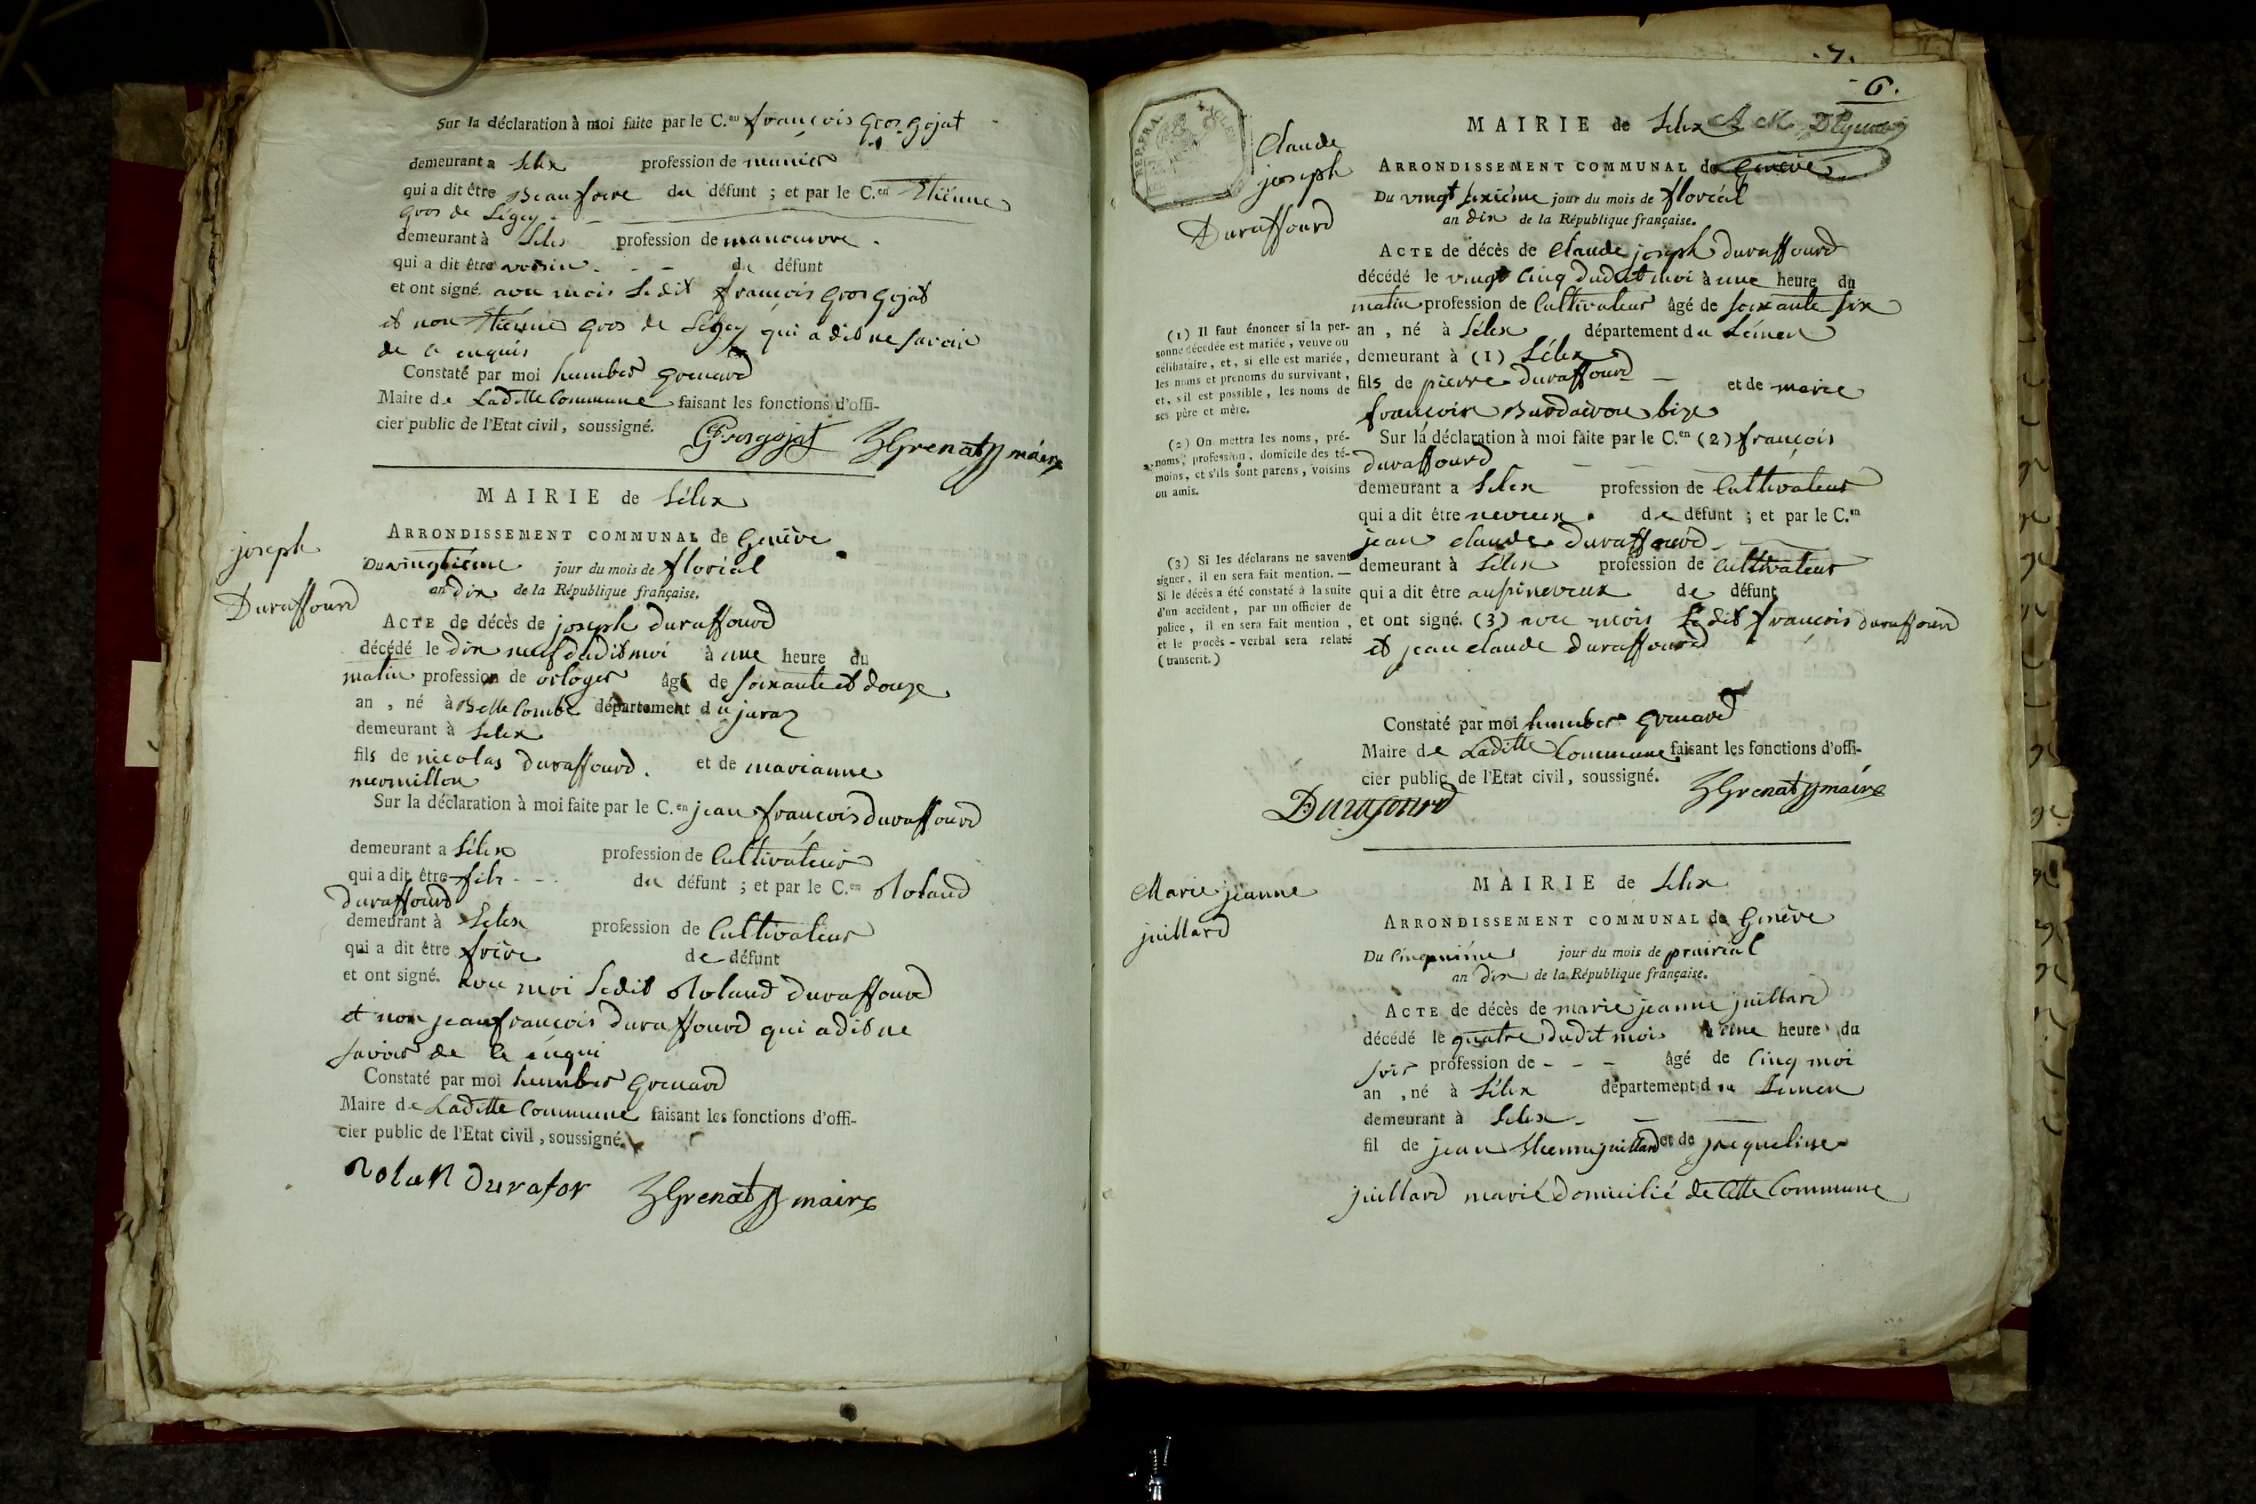 Sur la déclaration à moi faite par le C.en françois Gros gojat
demeurant a Lélex profession de munier
qui a dit être Beaufrere du défunt ; et par le C.en Etiénne
gros de Légey
demeurant à Lélex profession de manoeuvre
qui a dit être voisin du défunt
et ont signé. avec mois Ledit françois Gros gojat
et non Etiénne gros de Légey qui a dit ne savoir
de ce enquis
Constaté par moi humber grenard
Maire de Laditte Commune faisant les fonctions d'offi-
cier public de l'Etat civil, soussigné.
Grosgojat Grenat maire
MAIRIE de Lélex
joseph
Duraffourd
ARRONDISSEMENT COMMUNAL de Genève
Du vingtiéme jour du mois de floréal
an dix de la République française.
ACTE de décès de joseph duraffourd
décédé le dix neuf dudit moi à une heure du
matin profession de orloger âgé de soixante et douze
an , né à Belle Combe département du jura
demeurant à Lelex
fils de nicolas duraffourd. et de marianne
mermillon
Sur la déclaration à moi faite par le C.en jean françois duraffourd
demeurant a Lélex profession de Cultivateur
qui a dit être fils du défunt ; et par le C.en Roland
duraffourd
demeurant à Lelex profession de Cultivateur
qui a dit être frère de défunt
et ont signé. avec moi Ledit Roland duraffourd
et non jeanfrancois duraffourd qui a dit ne
savoir de ce enqui
Constaté par moi humber grenard
Maire de Laditte Commune faisant les fonctions d'offi-
cier public de l'Etat civil, soussigné.
rolan durafor Grenat maire
7.
6.
REP. FRA.
MAIRIE de Lelex
Claude
joseph
Duraffourd
ARRONDISSEMENT COMMUNAL de Genève
Du vingt sixiéme jour du mois de floréal
an dix de la République française.
ACTE de décès de Claude joseph duraffourd
décédé le vingt cinq dudit moi à une heure du
matin profession de Cultivateur âgé de soixante six
an , né à Lélex département du Léman
demeurant à (1) Lélex
fils de pierre duraffourd et de marie
françoise
Sur la déclaration à moi faite par le C.en (2) françois
duraffourd
demeurant a Lelex profession de Cultivateur
qui a dit être neveux de défunt ; et par le C.en
jean claude duraffourd
demeurant à Lélex profession de Cultivateur
qui a dit être aussi neveux de défunt
et ont signé. (3) avec mois Ledit francois duraffourd
et jean claude duraffourd
Constaté par moi humber grenard
Maire de Laditte Commune faisant les fonctions d'offi-
cier public de l'Etat civil, soussigné.
Durafourd Grenat maire
(1) Il faut énoncer si la per-
sonne décédée est mariée, veuve ou
célibataire, et, si elle est mariée,
les noms et prénoms du survivant,
et, s'il est possible, les noms de
ses père et mère.
(2) On mettra les noms, pré-
noms, profession, domicile des té-
moins, et s'ils sont parens, voisins
ou amis.
(3) Si les déclarans ne savent
signer, il en sera fait mention. —
Si le décès a été constaté à la suite
d'un accident, par un officier de
police, il en sera fait mention,
et le procès-verbal sera relaté
(transcrit.)
MAIRIE de Lelex
Marie jeanne
juillard
ARRONDISSEMENT COMMUNAL de Genève
Du Cinquiéme jour du mois de prairial
an dix de la République française.
ACTE de décès de marie jeanne juillard
décédé le quatre dudit mois à une heure du
soir profession de - - - âgé de Cinq moi
an , né à Lélex département du Leman
demeurant à Lelex
fil de jean Etienne juillard et de jacqueline
juillard marié domicilié de Cette Commune